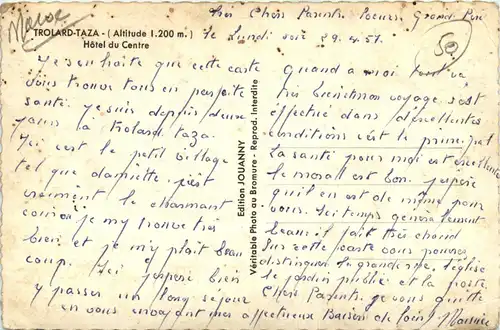 Maroc
TROLARD-TAZA - (Altitude 1.200 m.)
Hôtel du Centre
50
Très Chers Parents, soeurs, Grand Père
le Lundi soir 29.4.57.
Je souhaite que cette carte
vous trouve tous en parfaite
santé. Je suis depuis deux
jours à Trolard Taza.
Ici c'est le petit village
tel que
vraiment le charmant
je m'y trouve très
bien et je m'y plait beau
coup. Ici j'espère bien
y passer un long séjour
Edition JOUANNY
Véritable Photo au Bromure - Reprod. Interdite
Quand a moi tout va
très bien mon voyage s'est
effectué dans d'excellentes
conditions c'est le principal
La santé pour moi est excellente
le moral est bon. j'espère
qu'il en est de même pour
vous. Le temps généralement
beau il fait très chaud
Sur cette carte vous pouvez
distinguer la grande rue, l'église
le jardin public et la poste.
Chers Parents je vous quitte
en vous envoyant mes affectueux Baisers de loin